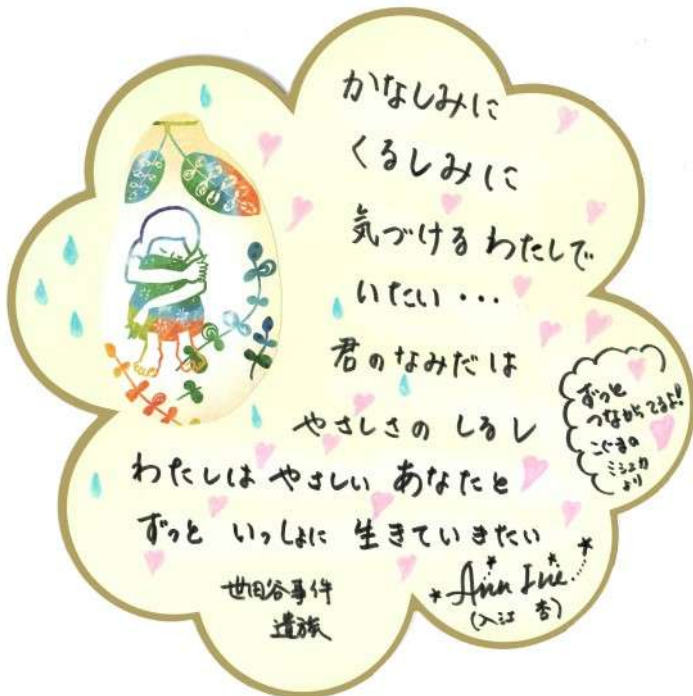 かなしみに
くるしみに
気づける わたしで
いたい・・・
君のなみだは
やさしさの しるし
わたしは やさしい あなたと
ずっと いっしょに 生きていきたい
ずっと
つながってるよ!
こぐまの
ミシュカ
より
世田谷事件
遺族
Ann Irie
(入江 杏)